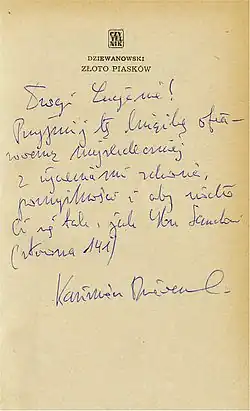 CZY
TEL
NIK
DZIEWANOWSKI
ZŁOTO PIASKÓW
Drogi Lucjanie!
Przyjmij tę książkę ofia-
rowaną najserdeczniej
z życzeniami zdrowia,
pomyślności i aby wiodło
Ci się tak, jak Ibn Saudow
(strona 141)
Kazimierz Dziewanowski